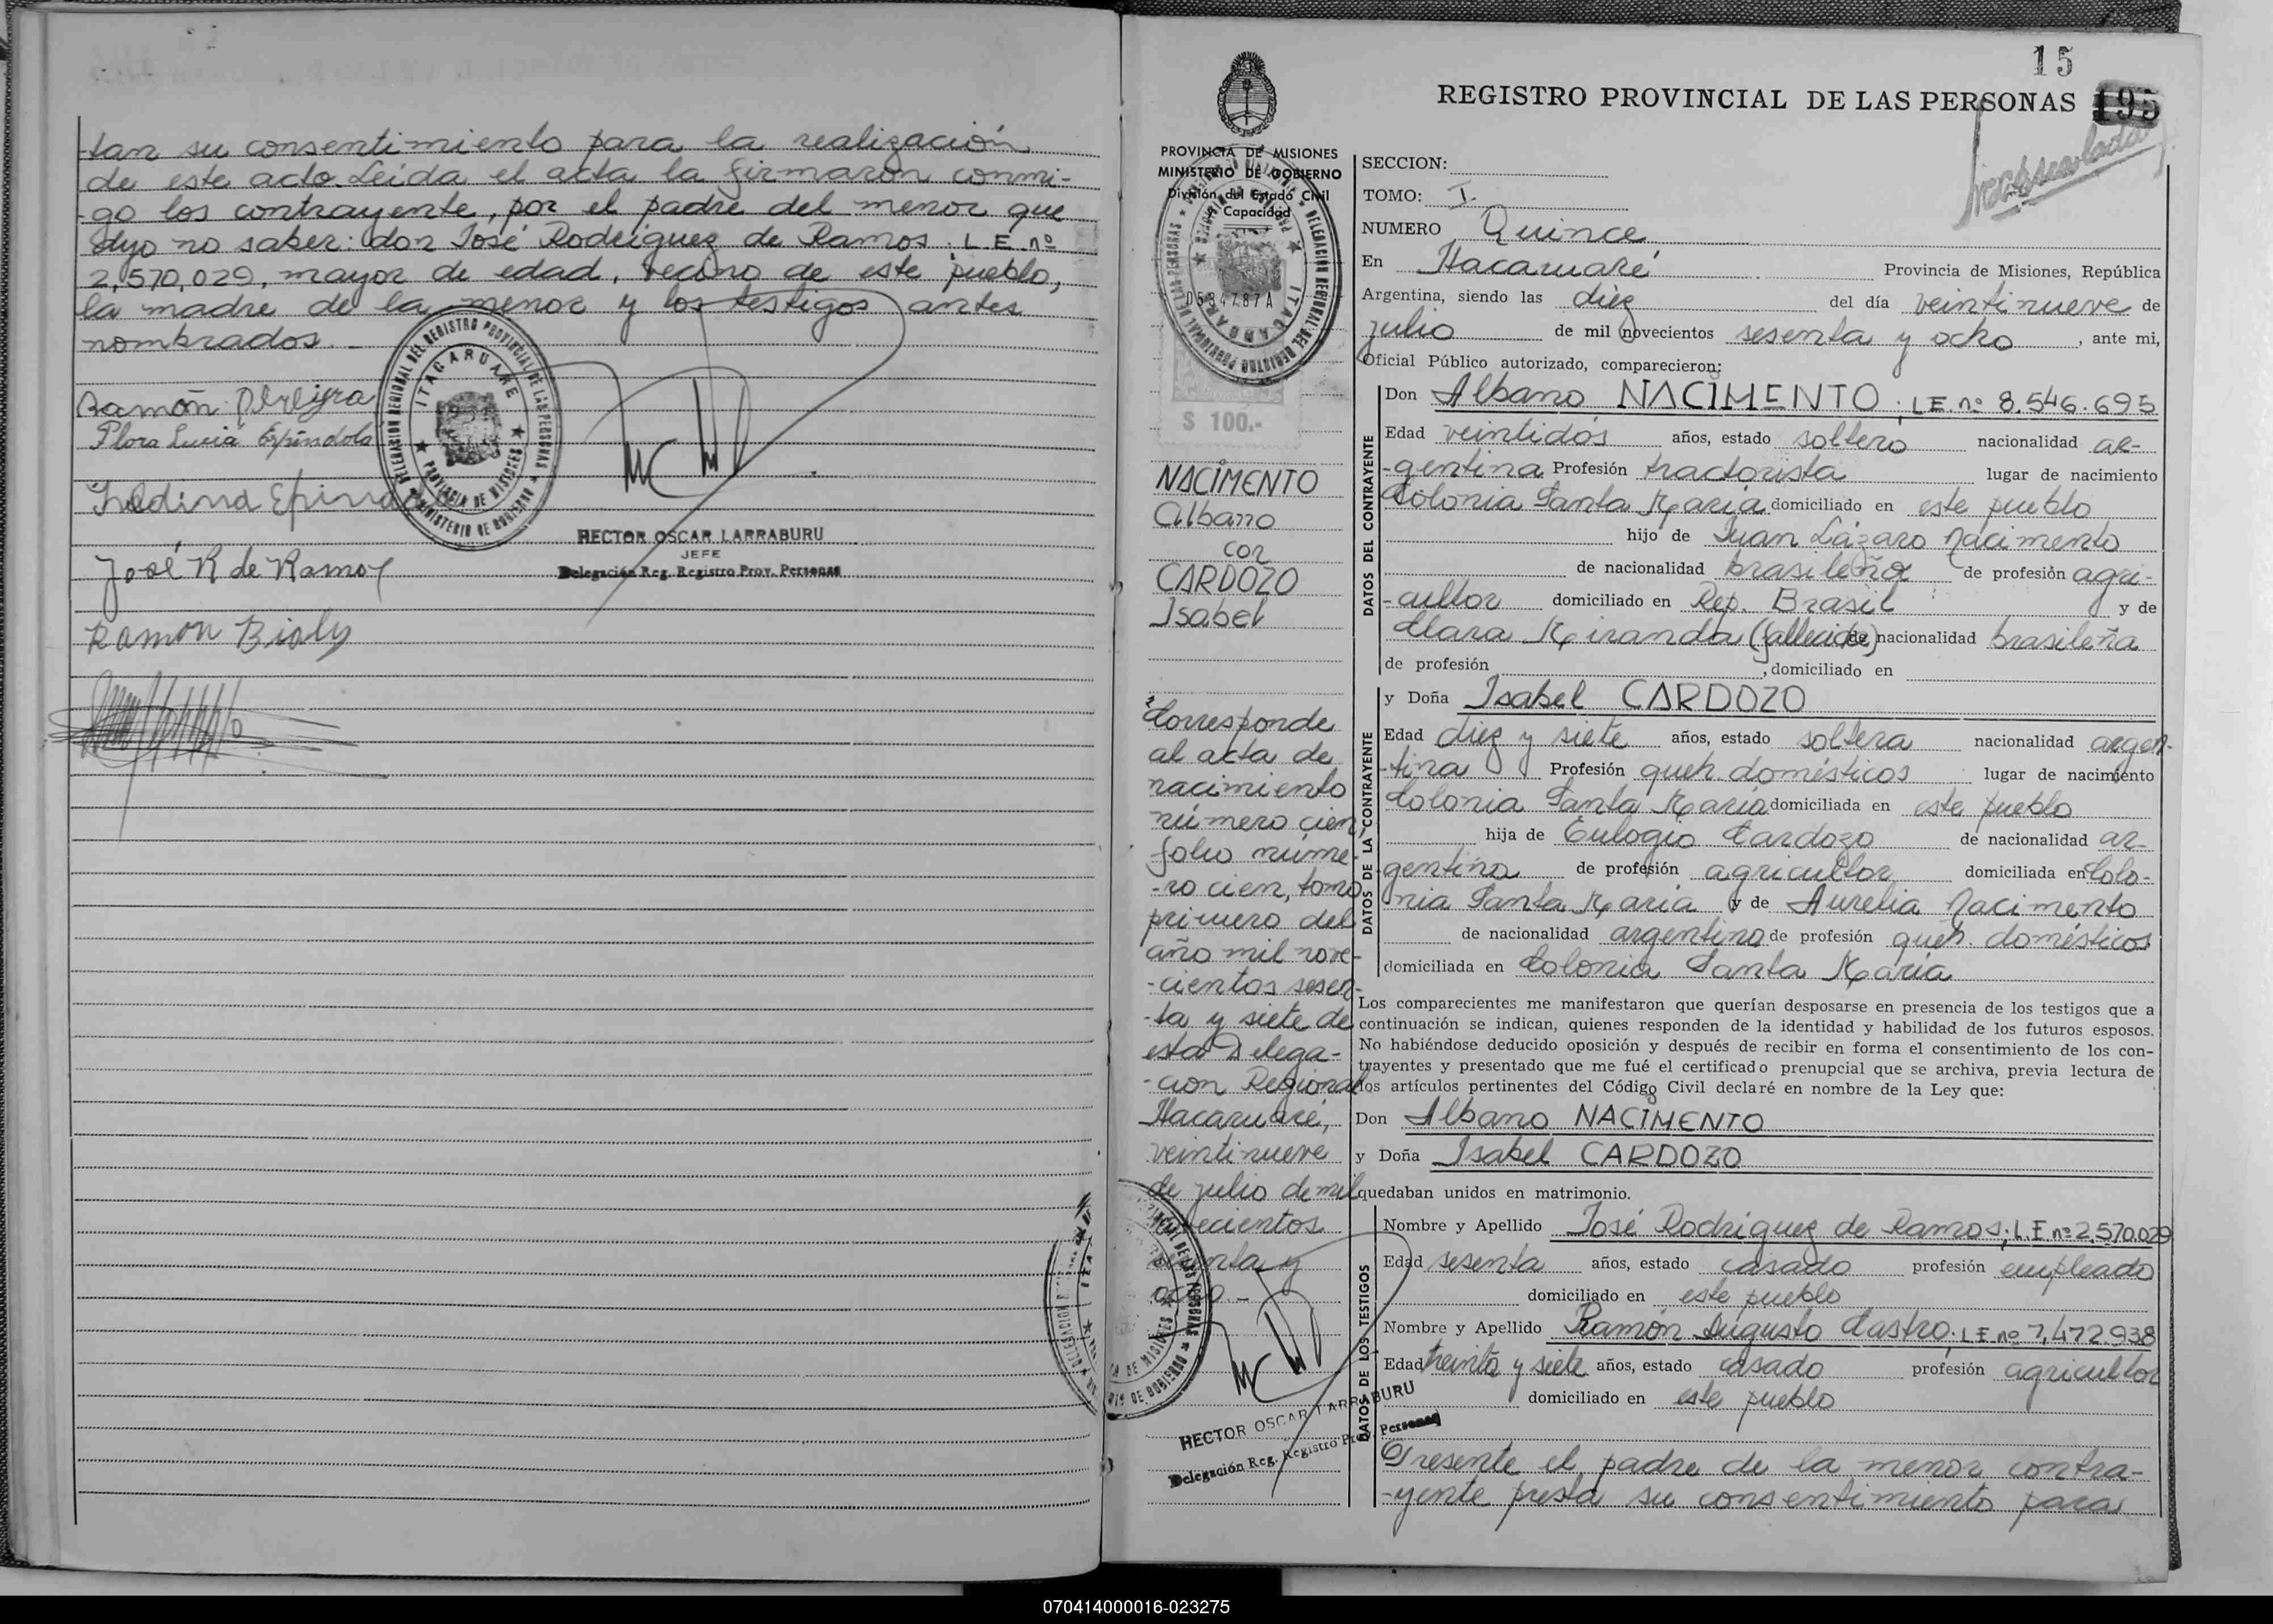 tan su consentimiento para la realización
de este acto. Leida el acta la firmaron conmi-
go los contrayente, por el padre del menor que
dijo no saber: don José Rodriguez de Ramos. L.E. nº
2,570,029, mayor de edad, vecino de este pueblo,
la madre de la menor y los testigos antes
nombrados. -
DELEGACION REGIONAL DEL REGISTRO PROVINCIAL DE LAS PERSONAS
ITACARUARE
PROVINCIA DE MISIONES
MINISTERIO DE GOBIERNO
Ramón Pereyra
Flora Lucia Espindola
José R de Ramos
Ramon Bialy
HECTOR OSCAR LARRABURU
JEFE
Delegación Reg. Registro Prov. Personas
15
REGISTRO PROVINCIAL DE LAS PERSONAS 195
PROVINCIA DE MISIONES
MINISTERIO DE GOBIERNO
División del Estado Civil
y Capacidad
0534787A
$ 100.-
NACIMENTO
Albano
con
CARDOZO
Isabel
Corresponde
al acta de
nacimiento
número cien,
folio núme-
-ro cien, tomo
primero del
año mil nove-
-cientos sesen-
-ta y siete de
esta Delega-
-cion Regional
Itacaruaré,
veintinueve
de julio de mil
novecientos
sesenta y
ocho. -
HECTOR OSCAR LARRABURU
Delegación Reg. Registro Prov. Personas
SECCION:
TOMO: I.
NUMERO Quince
En Itacaruaré Provincia de Misiones, República
Argentina, siendo las diez del día veintinueve de
julio de mil novecientos sesenta y ocho, ante mi,
Oficial Público autorizado, comparecieron:
DATOS DEL CONTRAYENTE
Don Albano NACIMENTO; L.E. nº 8.546.695
Edad veintidós años, estado soltero nacionalidad ar-
-gentina Profesión tractorista lugar de nacimiento
Colonia Santa María domiciliado en este pueblo
hijo de Juan Lázaro Nacimento
de nacionalidad brasileña de profesión agri-
-cultor domiciliado en Rep. Brasil y de
Clara Miranda (fallecida) de nacionalidad brasileña
de profesión , domiciliado en
DATOS DE LA CONTRAYENTE
y Doña Isabel CARDOZO
Edad diez y siete años, estado soltera nacionalidad argen-
-tina Profesión queh. domésticos lugar de nacimiento
Colonia Santa María domiciliada en este pueblo
hija de Eulogio Cardozo de nacionalidad ar-
gentina de profesión agricultor domiciliada en Colo-
nia Santa María y de Aurelia Nacimento
de nacionalidad argentina de profesión queh. domésticos
domiciliada en Colonia Santa María
Los comparecientes me manifestaron que querían desposarse en presencia de los testigos que a
continuación se indican, quienes responden de la identidad y habilidad de los futuros esposos.
No habiéndose deducido oposición y después de recibir en forma el consentimiento de los con-
trayentes y presentado que me fué el certificado prenupcial que se archiva, previa lectura de
los artículos pertinentes del Código Civil declaré en nombre de la Ley que:
Don Albano NACIMENTO
y Doña Isabel CARDOZO
quedaban unidos en matrimonio.
DATOS DE LOS TESTIGOS
Nombre y Apellido José Rodriguez de Ramos; L.E. nº 2.570.029
Edad sesenta años, estado casado profesión empleado
domiciliado en este pueblo
Nombre y Apellido Ramón Augusto Castro; L.E. nº 7,472.938
Edad treinta y siete años, estado casado profesión agricultor
domiciliado en este pueblo
Presente el padre de la menor contra-
-yente presta su consentimiento para
070414000016-023275